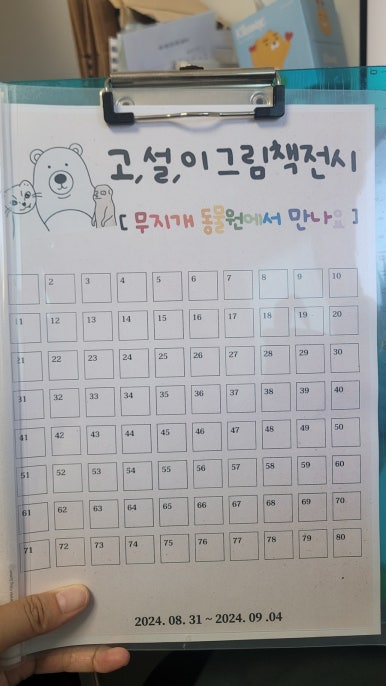 고,설,이 그림책전시
[ 무지개 동물원에서 만나요 ]
2 3 4 5 6 7 8 9 10
11 12 13 14 15 16 17 18 19 20
21 22 23 24 25 26 27 28 29 30
31 32 33 34 35 36 37 38 39 40
41 42 43 44 45 46 47 48 49 50
51 52 53 54 55 56 57 58 59 60
61 62 63 64 65 66 67 68 69 70
71 72 73 74 75 76 77 78 79 80
2024. 08. 31 ~ 2024. 09 .04